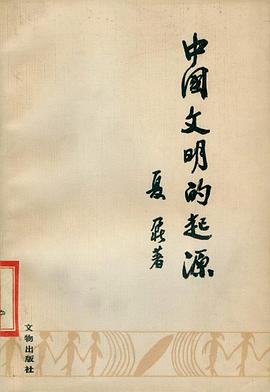 中国文明的起源
夏鼐著
文物出版社